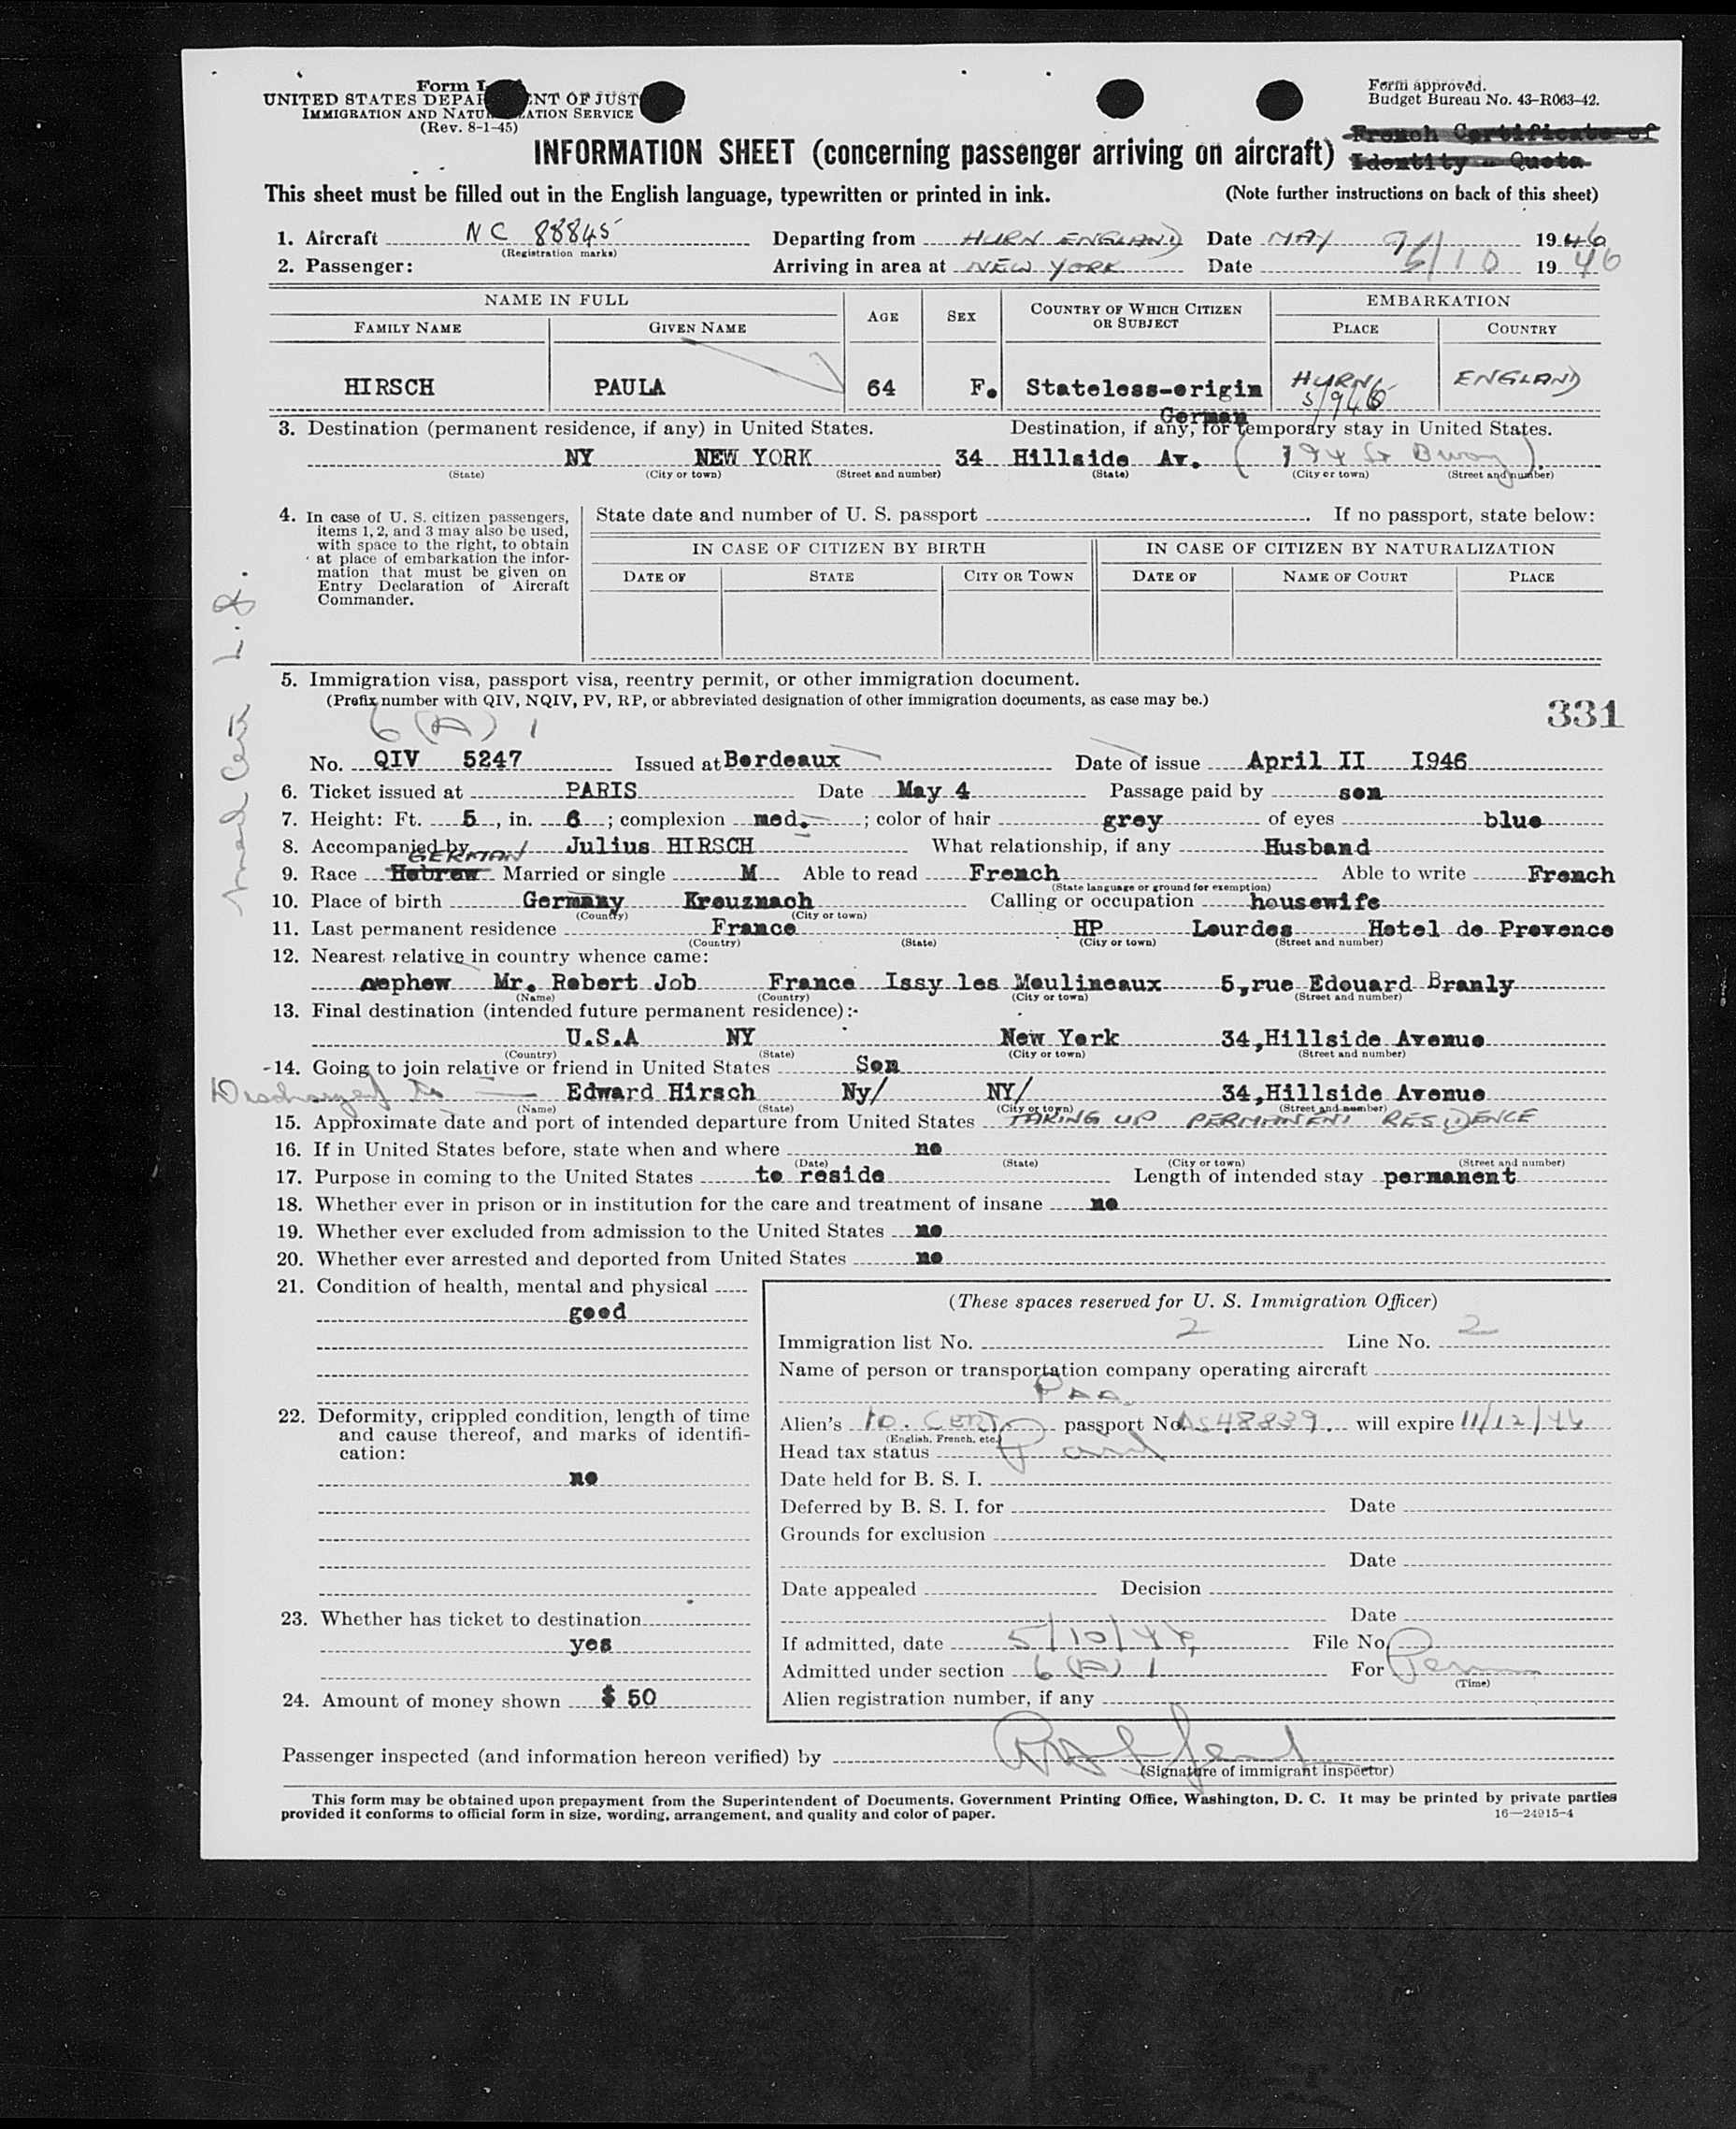 Form I
UNITED STATES DEPA NT OF JUST
IMMIGRATION AND NATU ZATION SERVICE
(Rev. 8-1-45)
Form approved.
Budget Bureau No. 43-R063-42.
French Certificate of
Identity - Quota
INFORMATION SHEET (concerning passenger arriving on aircraft)
This sheet must be filled out in the English language, typewritten or printed in ink. (Note further instructions on back of this sheet)
1. Aircraft NC 88845 Departing from HURN ENGLAND Date MAY 9 1946
(Registration marks)
2. Passenger: Arriving in area at NEW YORK Date 5/10 1946
NAME IN FULL EMBARKATION
FAMILY NAME GIVEN NAME AGE SEX COUNTRY OF WHICH CITIZEN OR SUBJECT PLACE COUNTRY
HIRSCH PAULA 64 F. Stateless-origin German HURN 5/9/46 ENGLAND
3. Destination (permanent residence, if any) in United States. Destination, if any, for temporary stay in United States.
NY NEW YORK 34 Hillside Av. (194 St Bway).
(State) (City or town) (Street and number) (State) (City or town) (Street and number)
4. In case of U. S. citizen passengers, items 1, 2, and 3 may also be used, with space to the right, to obtain at place of embarkation the information that must be given on Entry Declaration of Aircraft Commander.
State date and number of U. S. passport . If no passport, state below:
IN CASE OF CITIZEN BY BIRTH IN CASE OF CITIZEN BY NATURALIZATION
DATE OF STATE CITY OR TOWN DATE OF NAME OF COURT PLACE
med Cert L.J.
5. Immigration visa, passport visa, reentry permit, or other immigration document.
(Prefix number with QIV, NQIV, PV, RP, or abbreviated designation of other immigration documents, as case may be.)
331
6 (A) 1
No. QIV 5247 Issued at Bordeaux Date of issue April II I946
6. Ticket issued at PARIS Date May 4 Passage paid by son
7. Height: Ft. 5, in. 6; complexion med. ; color of hair grey of eyes blue
8. Accompanied by Julius HIRSCH What relationship, if any Husband
GERMAN
9. Race Hebrew Married or single M Able to read French Able to write French
(State language or ground for exemption)
10. Place of birth Germany Kreuznach Calling or occupation housewife
(Country) (City or town)
11. Last permanent residence France HP Lourdes Hotel de Provence
(Country) (State) (City or town) (Street and number)
12. Nearest relative in country whence came:
nephew Mr. Robert Job France Issy les Moulineaux 5,rue Edouard Branly
(Name) (Country) (City or town) (Street and number)
13. Final destination (intended future permanent residence):
U.S.A NY New York 34,Hillside Avenue
(Country) (State) (City or town) (Street and number)
14. Going to join relative or friend in United States Son
Discharged to Edward Hirsch Ny/ NY/ 34,Hillside Avenue
(Name) (State) (City or town) (Street and number)
15. Approximate date and port of intended departure from United States TAKING UP PERMANENT RESIDENCE
16. If in United States before, state when and where no
(Date) (State) (City or town) (Street and number)
17. Purpose in coming to the United States to reside Length of intended stay permanent
18. Whether ever in prison or in institution for the care and treatment of insane no
19. Whether ever excluded from admission to the United States no
20. Whether ever arrested and deported from United States no
21. Condition of health, mental and physical
good
22. Deformity, crippled condition, length of time and cause thereof, and marks of identification:
no
23. Whether has ticket to destination
yes
24. Amount of money shown $ 50
(These spaces reserved for U. S. Immigration Officer)
Immigration list No. 2 Line No. 2
Name of person or transportation company operating aircraft
PAA
Alien's ID. CERT. passport No. 48839. will expire 11/12/46
(English, French, etc.)
Head tax status Paid
Date held for B. S. I.
Deferred by B. S. I. for Date
Grounds for exclusion
Date
Date appealed Decision
Date
If admitted, date 5/10/46 File No.
Admitted under section 6 (A) 1 For Perm
(Time)
Alien registration number, if any
Passenger inspected (and information hereon verified) by
(Signature of immigrant inspector)
This form may be obtained upon prepayment from the Superintendent of Documents, Government Printing Office, Washington, D. C. It may be printed by private parties
provided it conforms to official form in size, wording, arrangement, and quality and color of paper. 16—24915-4